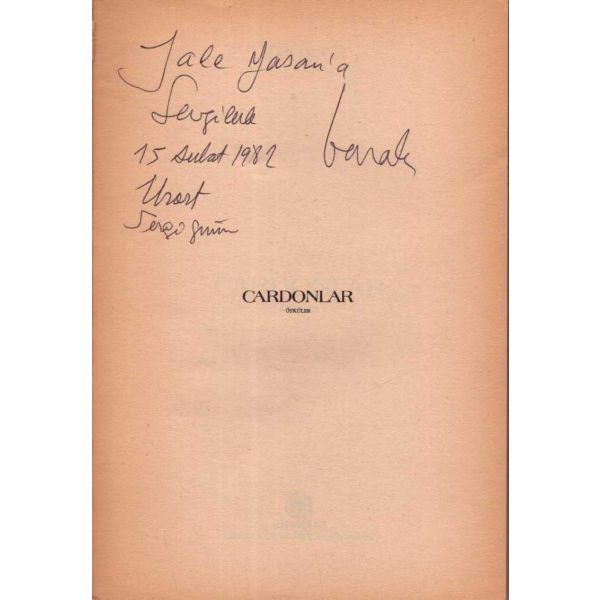 Jale Yasan'a
Sevgilerle
15 Şubat 1982
Urart
Sergi günü
CARDONLAR
ÖYKÜLER